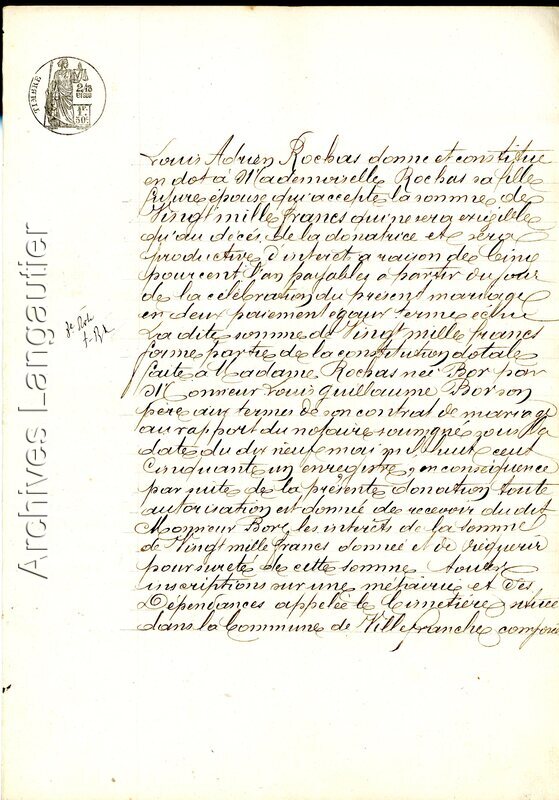 TIMBRE
Louis Adrien Rochas donne et constitue
en dot à Mademoiselle Rochas sa fille
future épouse qui accepte la somme de
Vingt mille francs qui ne sera exigible
qu'au décés de la donatrice et sera
productive d'interet a raison de Cinq
pour cent l'an payables a partir du jour
de la célébration du present mariage
en deux paiement egaux terme echu
La dite somme de Vingt mille francs
forme partie de la constitution dotale
faite à Madame Rochas née Bor par
Monsieur Louis Guillaume Bor son
père aux termes de son contrat de mariage
au rapport du notaire soussigné sous la
date du dix neuf mai mil huit cent
Cinquante un enregistré, en conséquence
par suite de la présente donation toute
autorisation est donnée de recevoir du dit
Monsieur Bor, les interêts de la somme
de Vingt mille francs donnée et de requerir
pour sureté de cette somme toutes
inscriptions sur une métairie et ses
Dépendances appelée le Cimetière située
dans la Commune de Villefranche composée
Archives Langautier